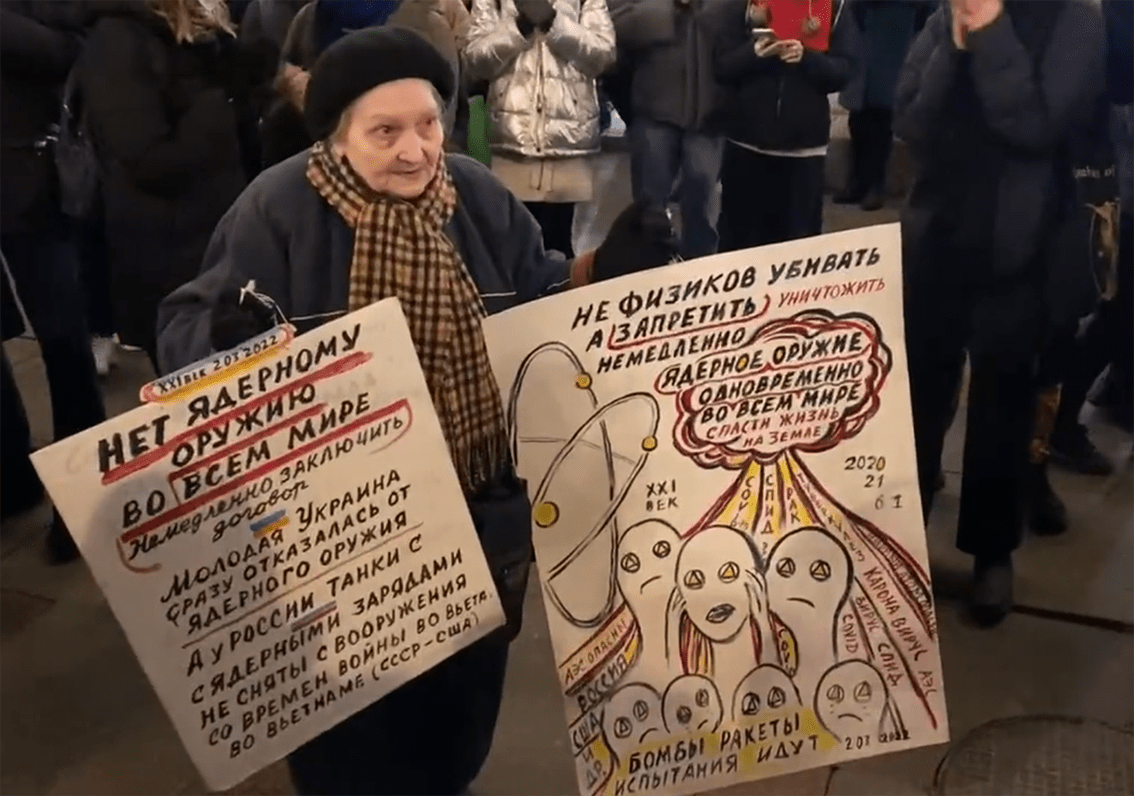 XXI ВЕК 2 03 2022
НЕТ ЯДЕРНОМУ
ОРУЖИЮ
ВО ВСЕМ МИРЕ
НЕМЕДЛЕННО ЗАКЛЮЧИТЬ
ДОГОВОР
МОЛОДАЯ УКРАИНА
СРАЗУ ОТКАЗАЛАСЬ ОТ
ЯДЕРНОГО ОРУЖИЯ
А У РОССИИ ТАНКИ С
С ЯДЕРНЫМИ ЗАРЯДАМИ
НЕ СНЯТЫ С ВООРУЖЕНИЯ
СО ВРЕМЕН ВОЙНЫ ВО ВЬЕТА.
ВО ВЬЕТНАМЕ (СССР-США)
НЕ ФИЗИКОВ УБИВАТЬ
А ЗАПРЕТИТЬ УНИЧТОЖИТЬ
НЕМЕДЛЕННО
ЯДЕРНОЕ ОРУЖИЕ
ОДНОВРЕМЕННО
ВО ВСЕМ МИРЕ
СПАСТИ ЖИЗНЬ
НА ЗЕМЛЕ
2020
21
XXI
ВЕК
СПИД
РАК
КАРОНА ВИРУС АЭС
ВИРУС СПИД
COVID
АЭС ОПАСНЫ
РОССИЯ
США
И ДР.
БОМБЫ РАКЕТЫ
ИСПЫТАНИЯ ИДУТ
2 03 2022